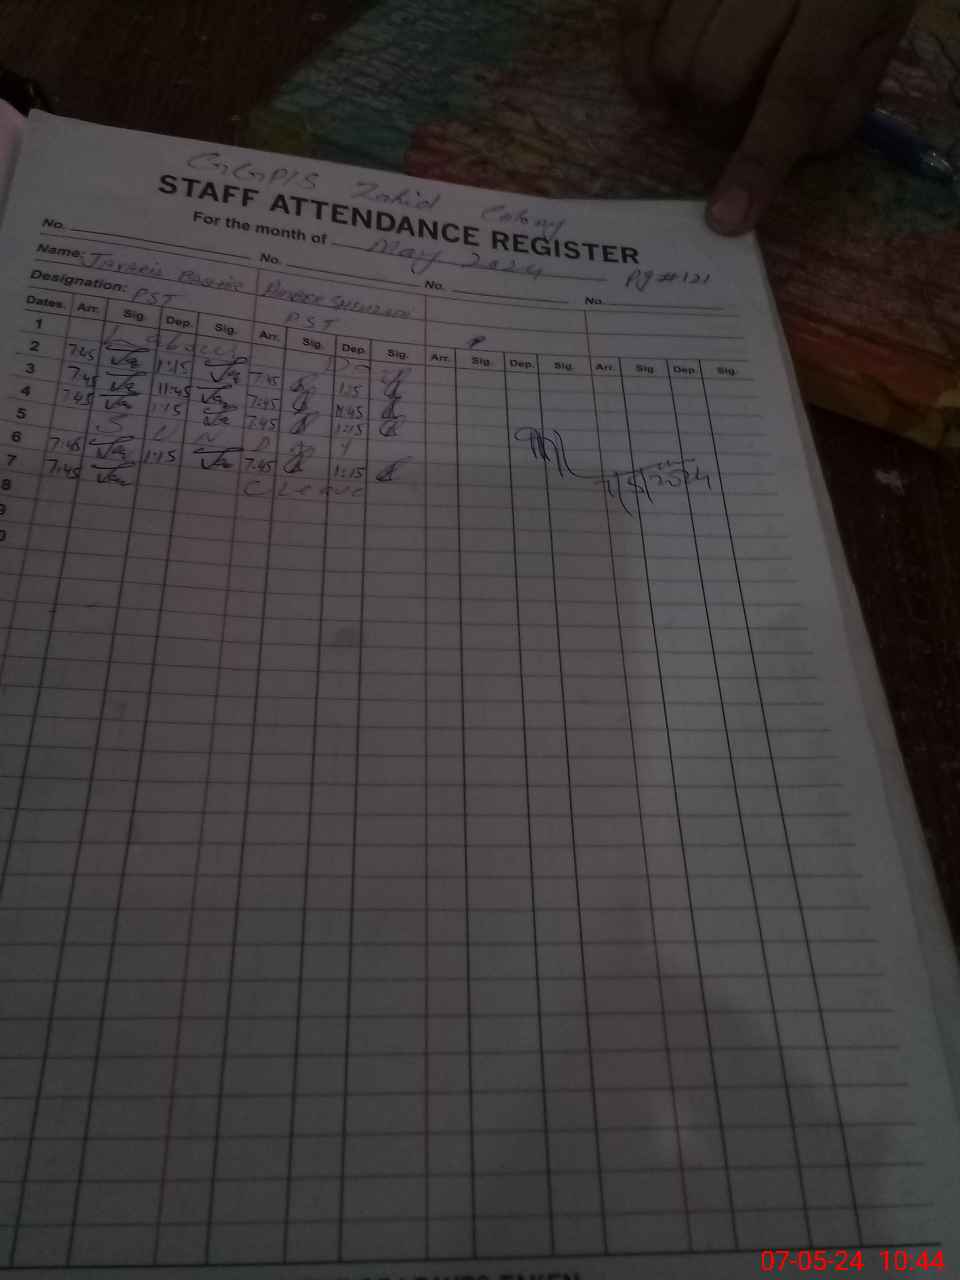 GGPS Zahid Colony
STAFF ATTENDANCE REGISTER
For the month of May 2024
Pg # 121
No. No. No. No.
Name:
Designation: PST PST
Dates. Arr. Sig. Dep. Sig. Arr. Sig. Dep. Sig. Arr. Sig. Dep. Sig. Arr. Sig. Dep. Sig.
1 Labour Day
2 7:45 1:15 7:45 1:15
3 7:45 11:45 7:45 11:45
4 7:45 1:15 7:45 1:15
5 S U N D A Y
6 7:45 1:15 7:45 1:15
7 7:45 C Leave
7/5/2024
8
9
0
07-05-24 10:44